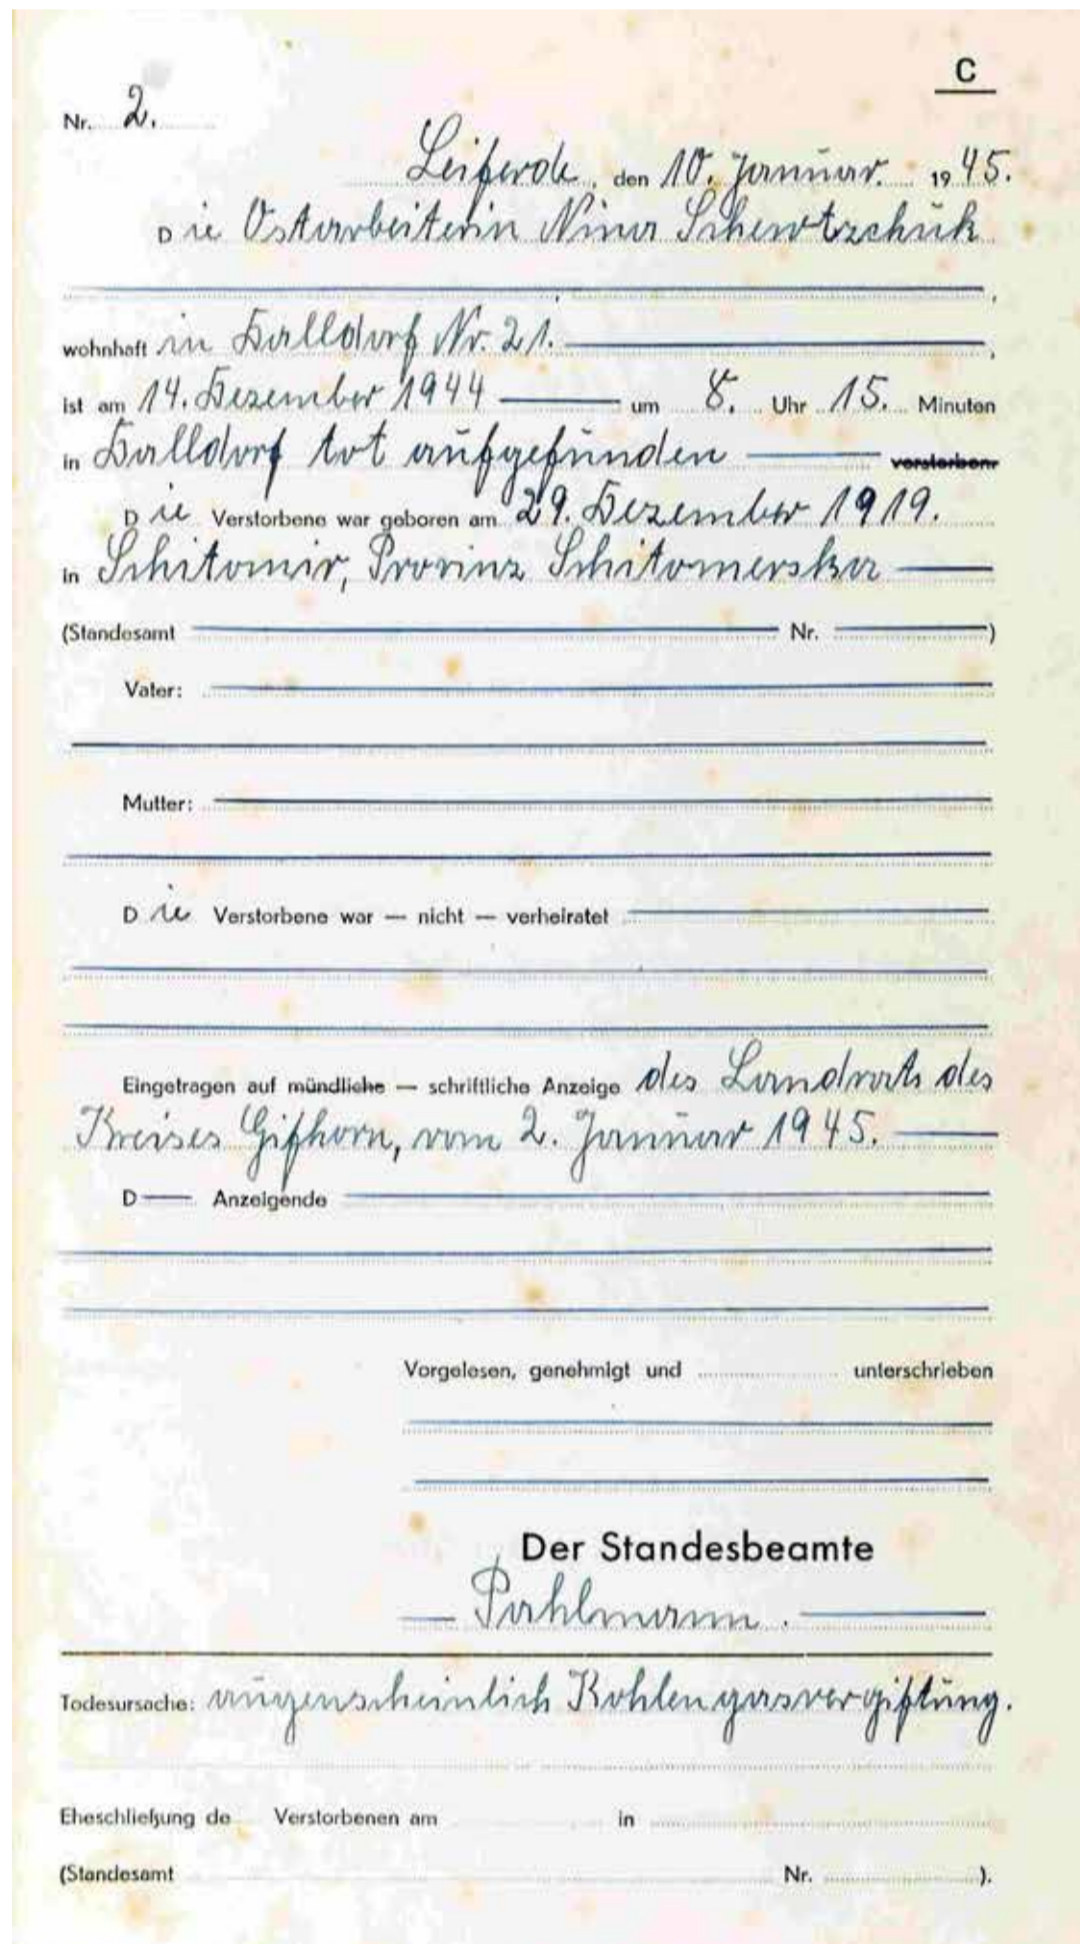 C
Nr. 2.
Leiferde, den 10. Januar. 1945.
Die Ostarbeiterin Nina Schewtzchuk
wohnhaft in Dalldorf Nr. 21.
ist am 14. Dezember 1944 um 8. Uhr 15. Minuten
in Dalldorf tot aufgefunden verstorben.
Die Verstorbene war geboren am 29. Dezember 1919.
in Schitomir, Provinz Schitomerska
(Standesamt Nr. )
Vater:
Mutter:
Die Verstorbene war — nicht — verheiratet
Eingetragen auf mündliche — schriftliche Anzeige des Landrats des
Kreises Gifhorn, vom 2. Januar 1945.
D Anzeigende
Vorgelesen, genehmigt und unterschrieben
Der Standesbeamte
Pahlmann.
Todesursache: augenscheinlich Kohlengasvergiftung.
Eheschließung de Verstorbenen am in
(Standesamt Nr. ).